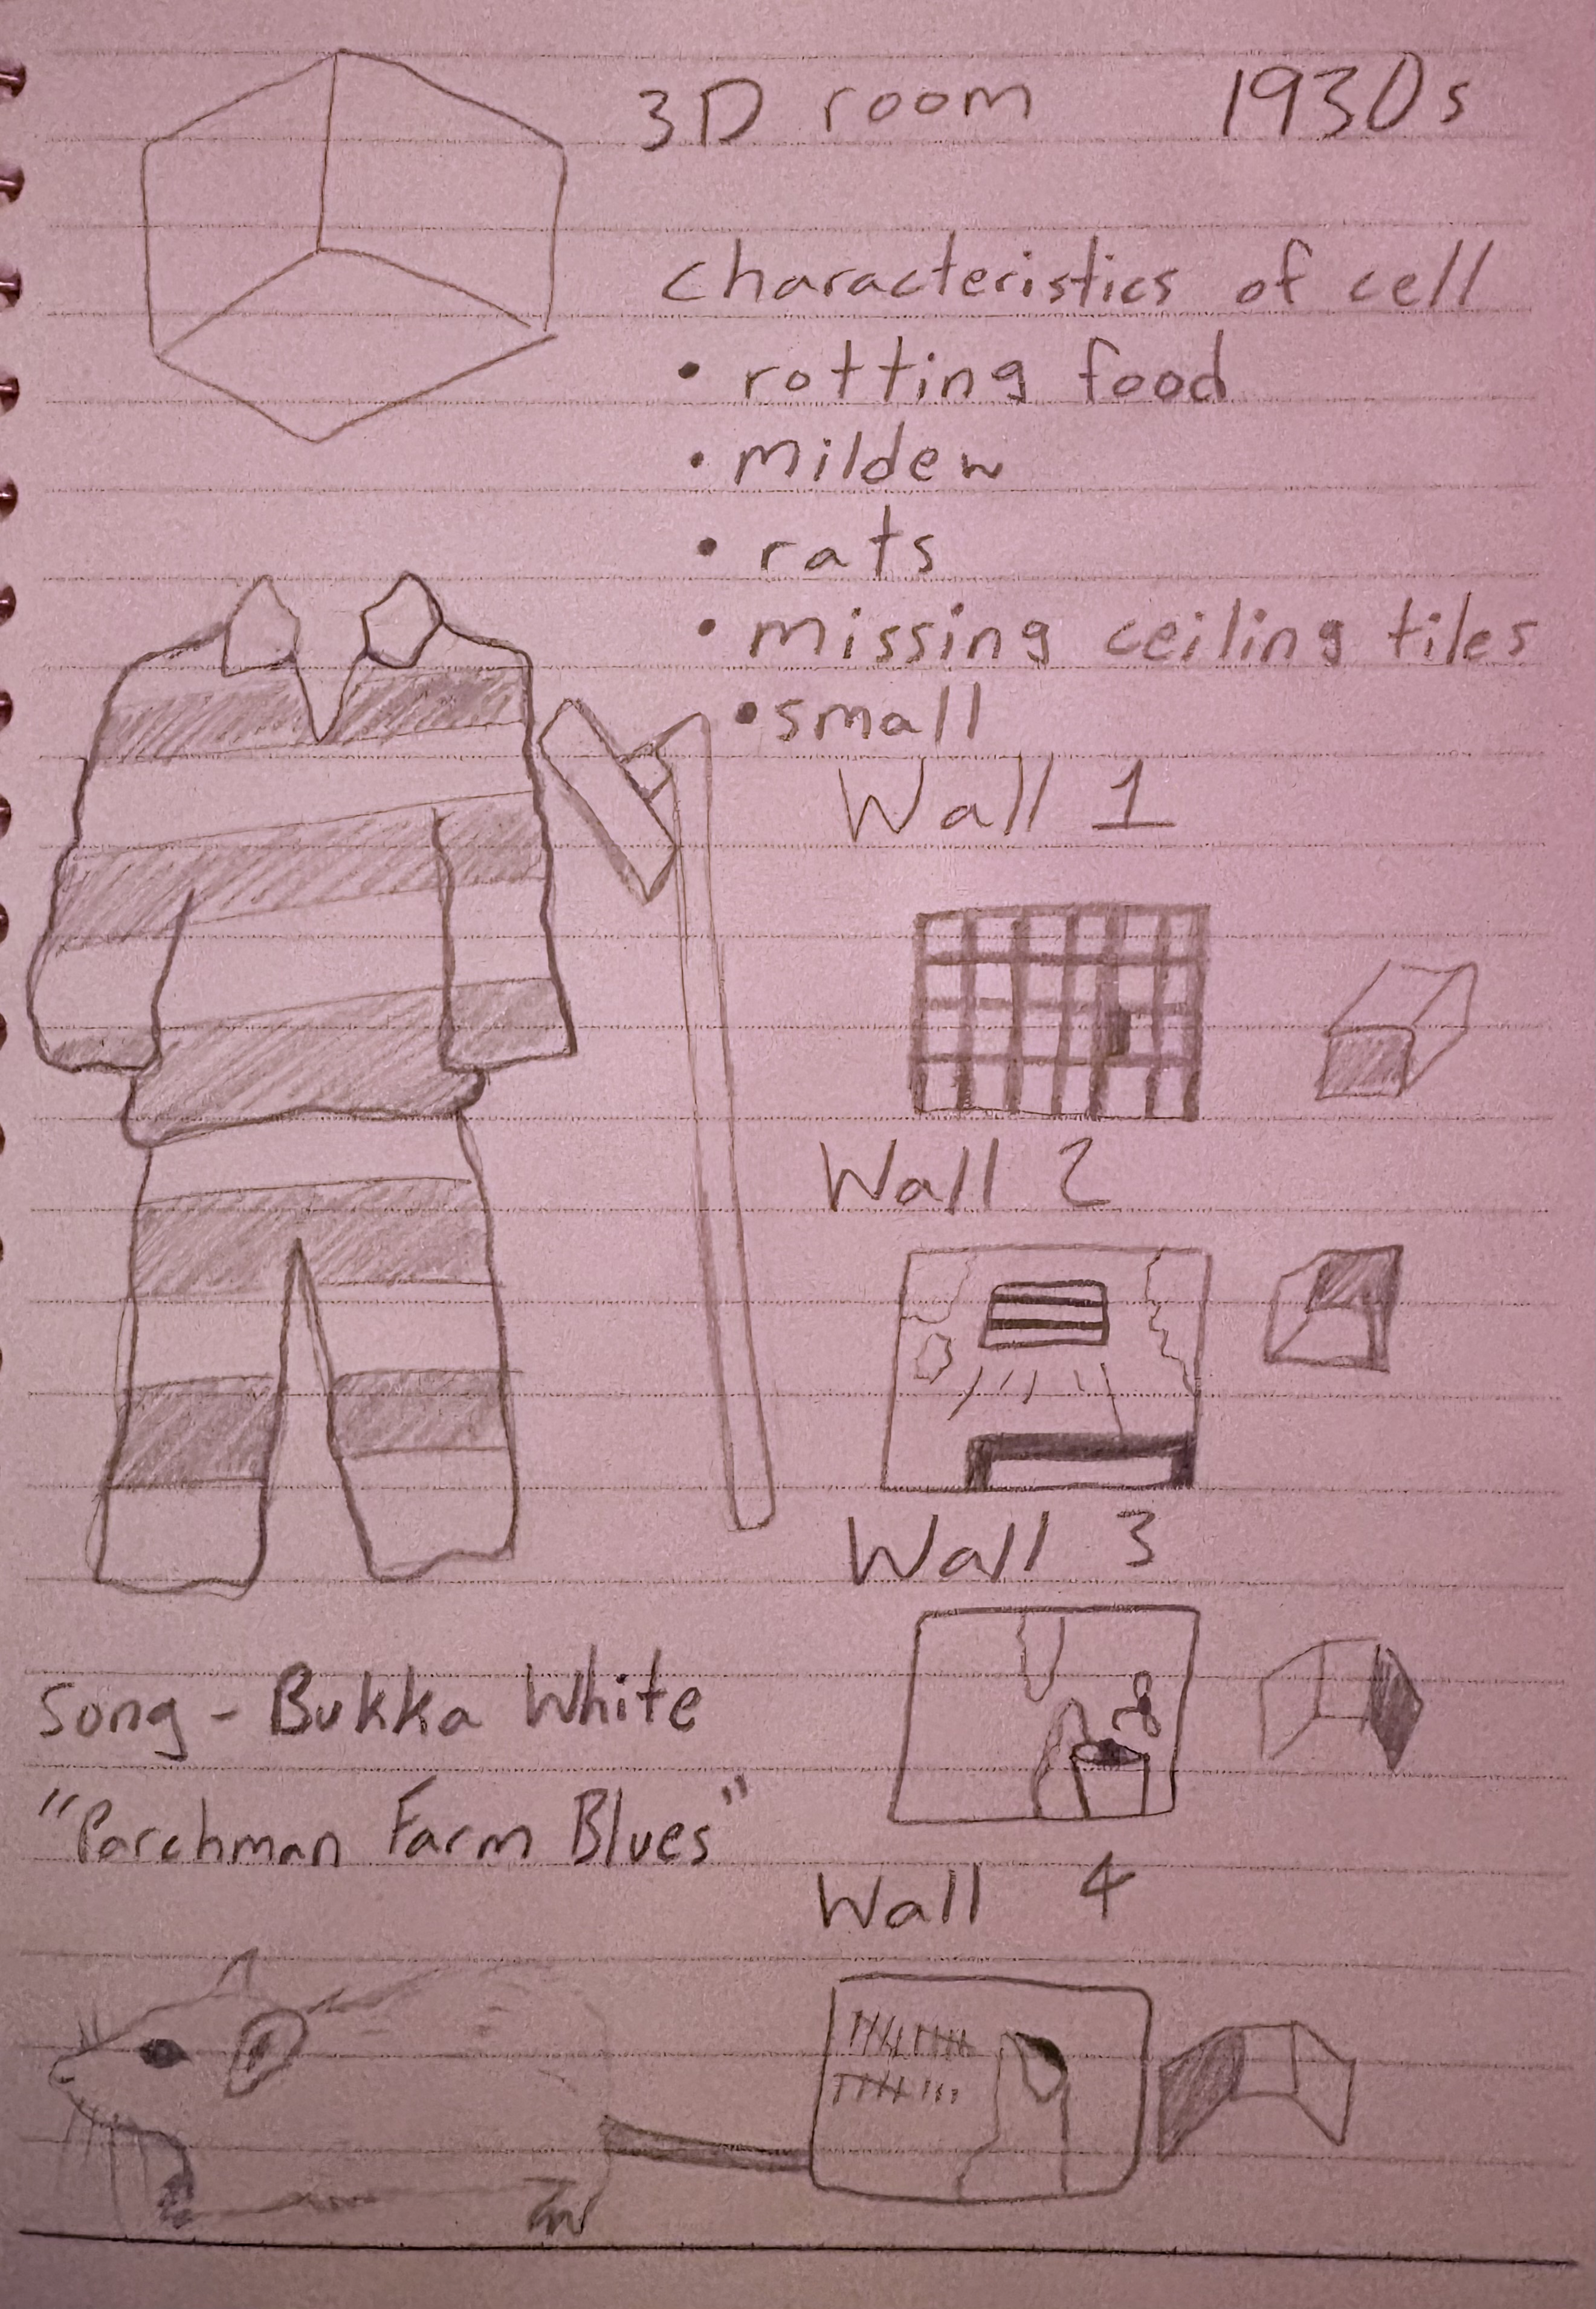 3D room 1930s
characteristics of cell
• rotting food
• mildew
• rats
• missing ceiling tiles
• small
Wall 1
Wall 2
Wall 3
song - Bukka White
"Parchman Farm Blues"
Wall 4